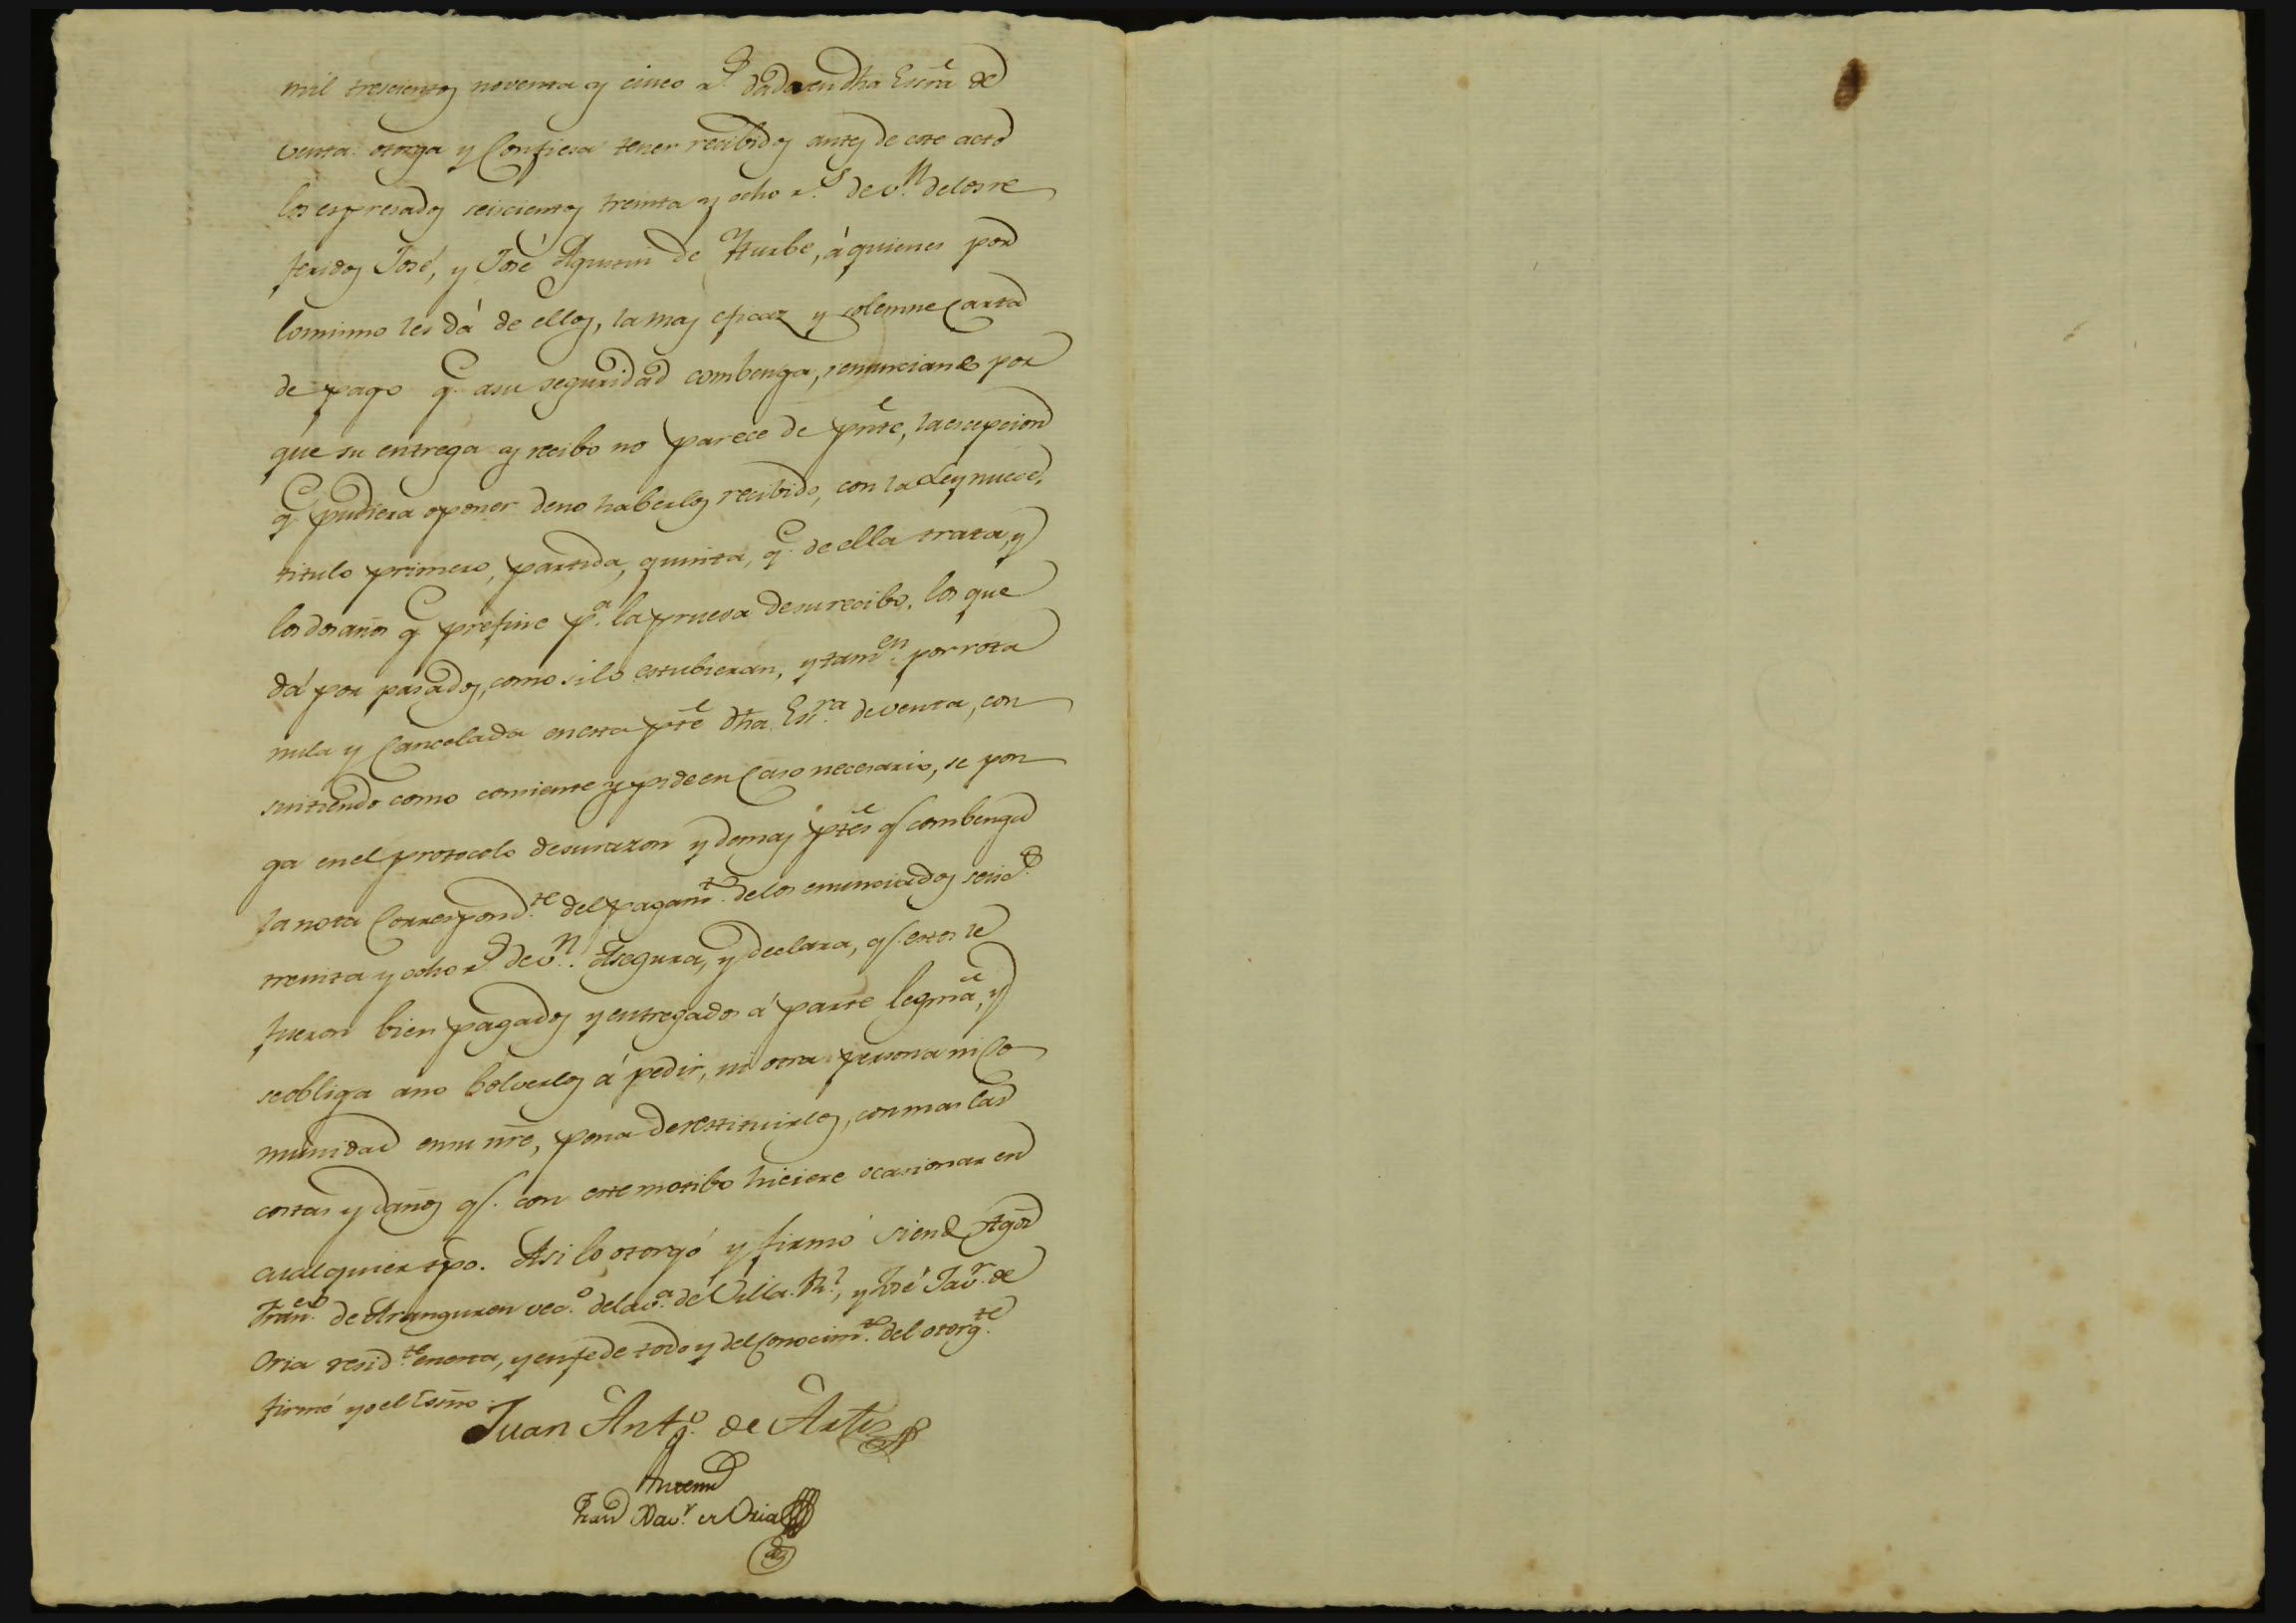 mil trescientos noventa y cinco r.s dada en dha Escra de
venta: otorga y Confiesa tener recibidos antes de este acto
los espresados seiscientos treinta y ocho r.s de v.n de los re
feridos José, y José Agustin de Yturbe, á quienes por
lo mismo les dá de ellos, la mas eficaz y solemne Carta
de pago q.e a su seguridad combenga, renunciando por
que su entrega y recibo no parece de pnte, la escepcion
q.e pudiera oponer de no haberlos recibido, con la Ley nueve,
titulo primero, partida, quinta, q.e de ella trata, y
los dos años q.e prefine p.a la prueba de su recibo, los que
dá por pasados, como si lo estubieran, y tam.en por rota
nula y Cancelada en esta pte dha Es.ra de venta, con
sintiendo como consiente y pide en Caso necesario, se pon
ga en el protocolo de su razon y demas ptes q.e combenga
la nota Correspond.te del pagam.to de los enunciados seisc.s
treinta y ocho r.s de v.n. Asegura, y declara, q.e estos le
fueron bien pagados y entregados á parte legma, y
se obliga a no bolverlos á pedir, ni otra persona ni Co
munidad en su nre, pena de restituirlos, con mas las
costas y daños q.e con este motibo hiciere ocasionar en
cualquier tpo. Asi lo otorgó y firmó siendo tgos
Fran.co de Aranguren vec.o de la v.a de Villa R.l, y José Jav.r de
Oria resid.te en esta, y en fe de todo y del Conocim.to del otorg.te
firmé yo el Esno.
Juan Ant.o de Artiz
Antemi
Fran.co Xav.r de Oria